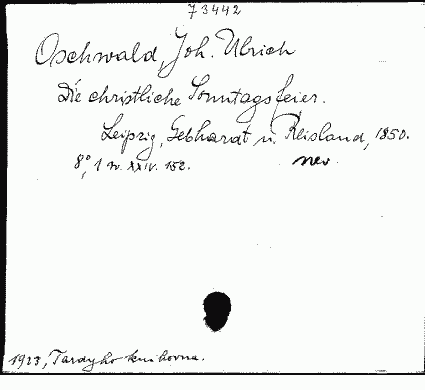 73442
Oschwald, Joh. Ulrich
Die christliche Sonntagsfeier.
Leipzig, Gebhardt u. Reisland, 1850.
8°, 1 n. XXIV. 152. nev.
1923, Tardyho knihovna.